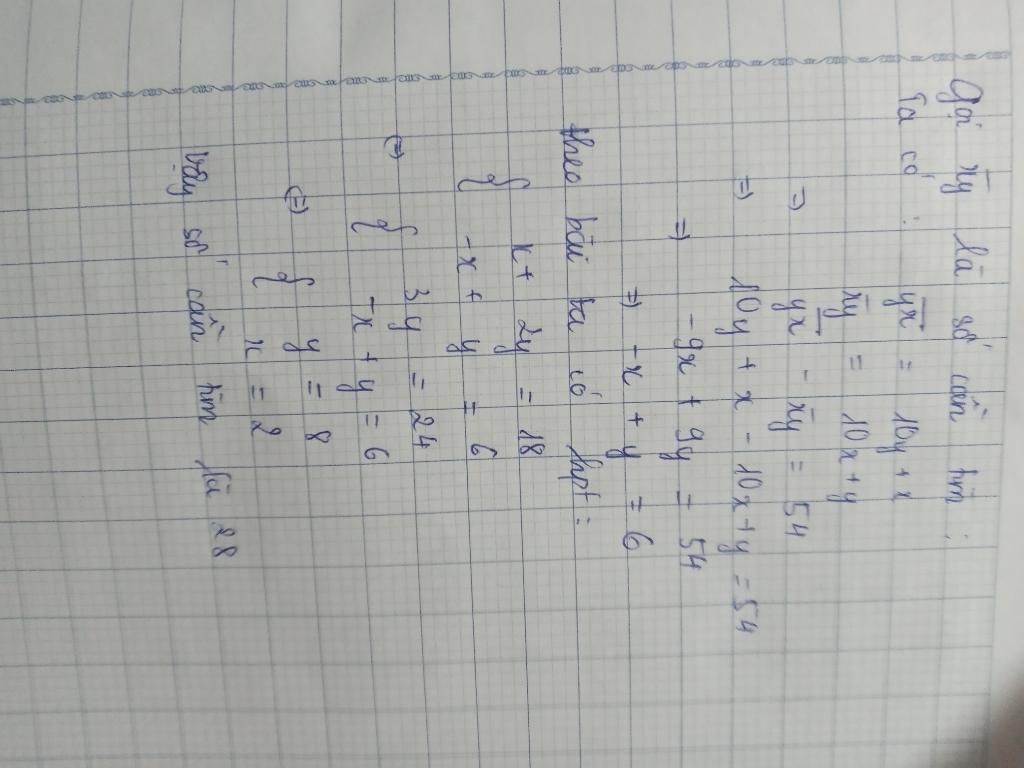 Gọi x̅y̅ là số cần tìm :
Ta có : y̅x̅ = 10y + x
x̅y̅ = 10x + y
=> y̅x̅ - x̅y̅ = 54
=> 10y + x - 10x + y = 54
=> - 9x + 9y = 54
=> - x + y = 6
theo bài ta có hpt :
{ x + 2y = 18
-x + y = 6
<=> { 3y = 24
-x + y = 6
<=> { y = 8
x = 2
Vậy số cần tìm là 28